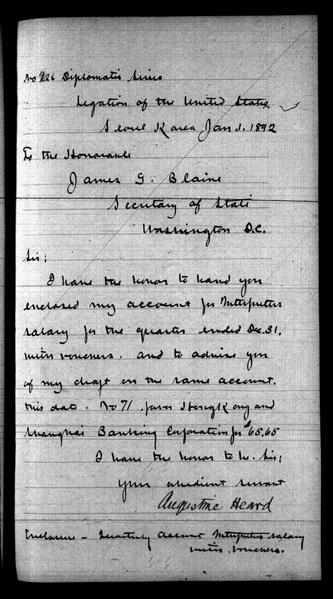 No 226 Diplomatic Series
Legation of the United States
Seoul Korea Jan 1. 1892
To the Honorable
James G. Blaine
Secretary of State
Washington D.C.
Sir;
I have the honor to hand you
enclosed my account for Interpreters
salary for the quarter ended Dec. 31,
with vouchers. and to advise you
of my draft on the same account,
this date. No 71. favor Hong Kong and
Shanghai Banking Corporation for $65.65
I have the honor to be. Sir;
your obedient servant
Augustine Heard
Enclosure - Quarterly Account Interpreters salary
with vouchers.